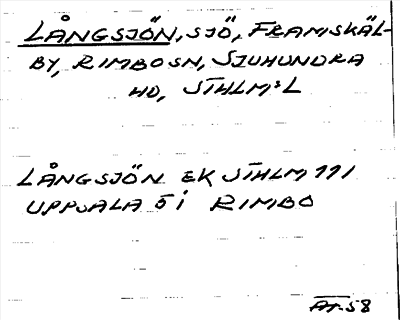 LÅNGSJÖN, SJÖ, FRAMSKÄL-
BY, RIMBO SN, SJUHUNDRA
HD, STHLM:S L
LÅNGSJÖN EK STHLM 111
UPPSALA 5 i RIMBO
AT-58